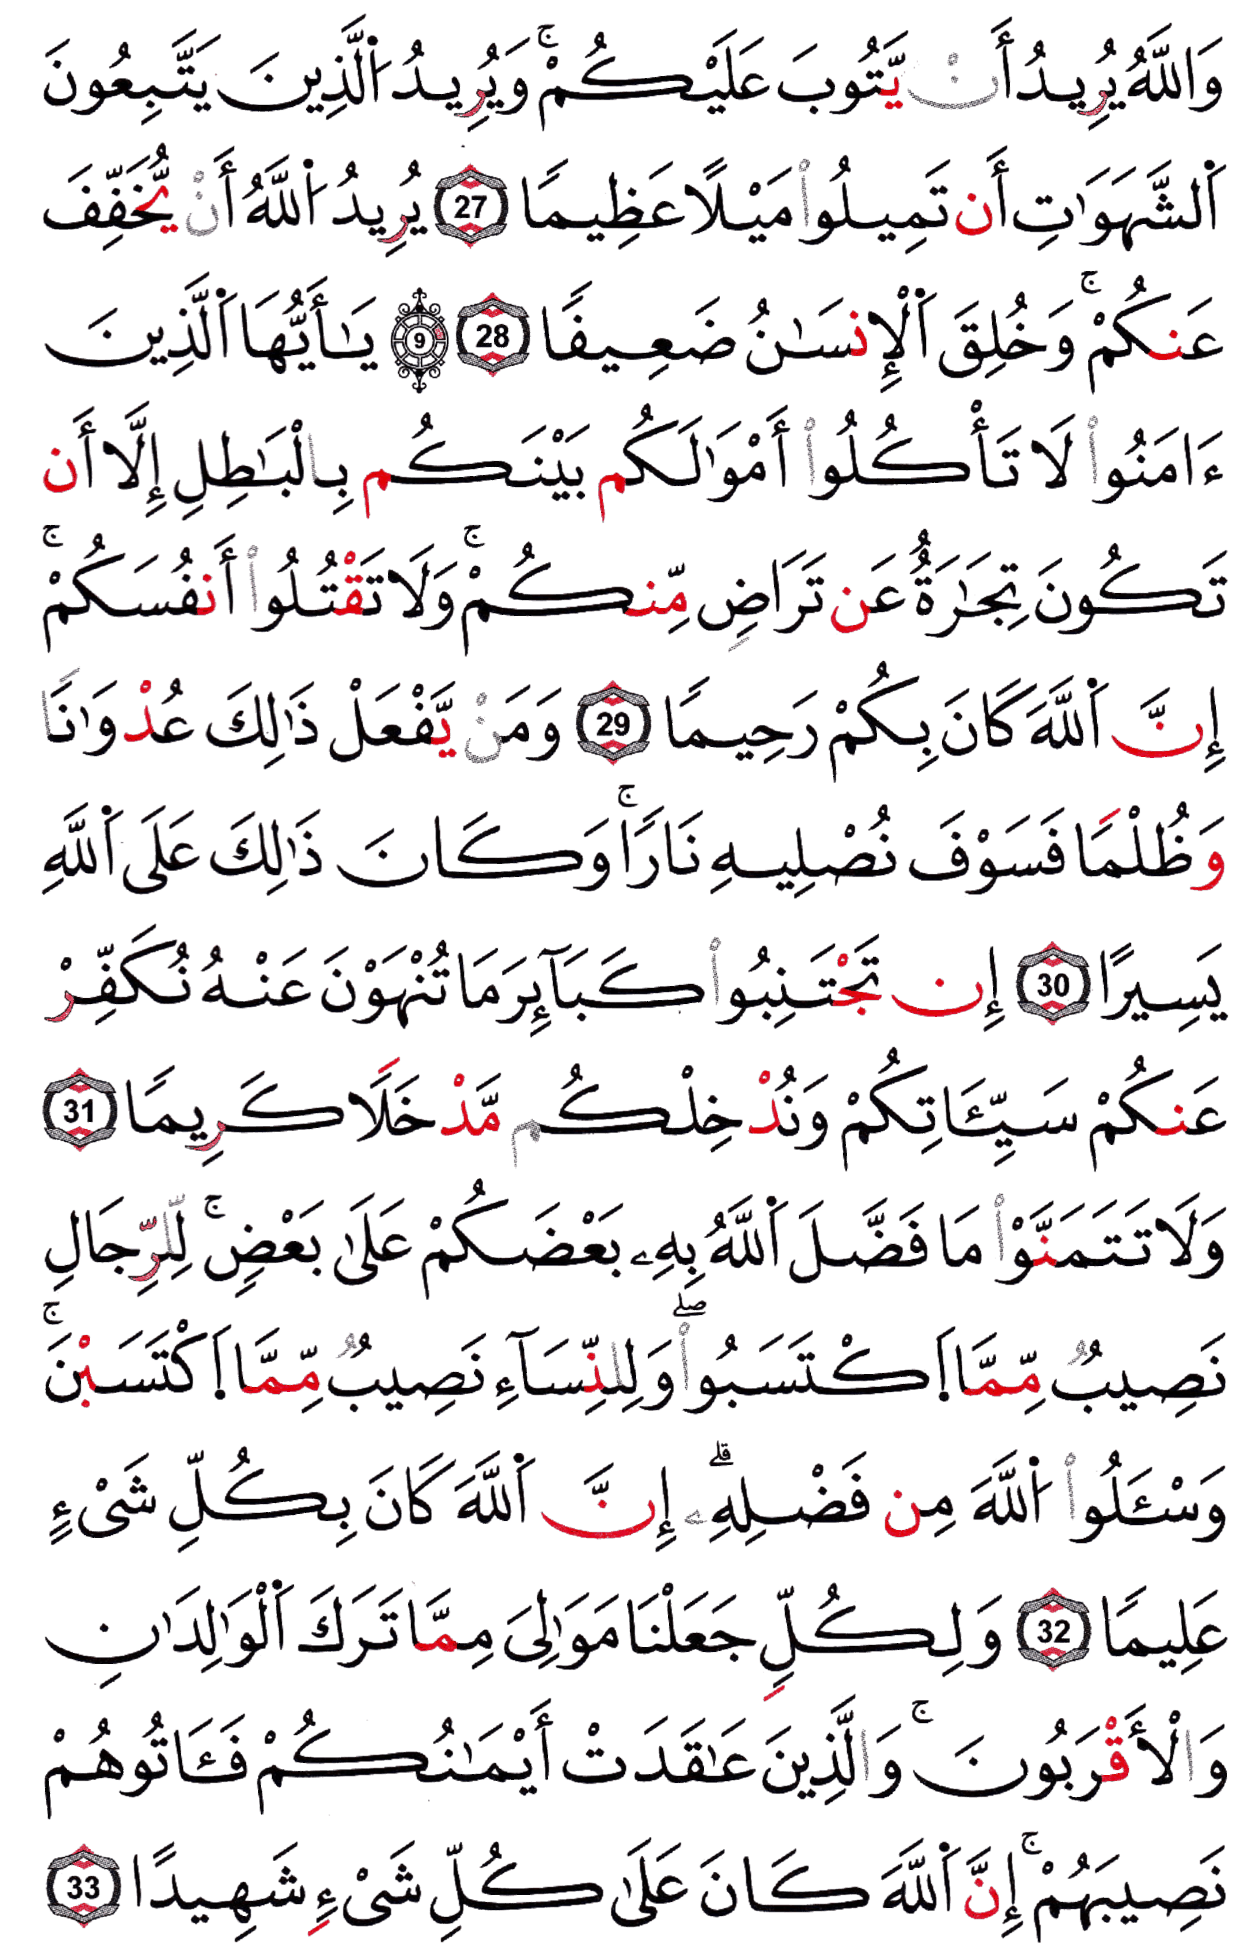 وَاللَّهُ يُرِيدُ أَنْ يَّتُوبَ عَلَيْكُمْ ۚ وَيُرِيدُ اَ۬لَّذِينَ يَتَّبِعُونَ
اَ۬لشَّهَوَٰتِ أَن تَمِيلُواْ مَيْلًا عَظِيمًا 27 يُرِيدُ اَ۬للَّهُ أَنْ يُّخَفِّفَ
عَنكُمْ ۚ وَخُلِقَ اَ۬لْإِنسَٰنُ ضَعِيفًا 28 9 يَٰأَيُّهَا اَ۬لَّذِينَ
ءَامَنُواْ لَا تَأْكُلُواْ أَمْوَٰلَكُم بَيْنَكُم بِالْبَٰطِلِ إِلَّا أَن
تَكُونَ تِجَٰرَةٌ عَن تَرَاضٍ مِّنكُمْ ۚ وَلَا تَقْتُلُواْ أَنفُسَكُمْ ۚ
إِنَّ اَ۬للَّهَ كَانَ بِكُمْ رَحِيمًا 29 وَمَنْ يَّفْعَلْ ذَٰلِكَ عُدْوَٰنًا
وَظُلْمًا فَسَوْفَ نُصْلِيهِ نَارًا ۚ وَكَانَ ذَٰلِكَ عَلَى اَ۬للَّهِ
يَسِيرًا 30 إِن تَجْتَنِبُواْ كَبَآئِرَ مَا تُنْهَوْنَ عَنْهُ نُكَفِّرْ
عَنكُمْ سَيِّـَٔاتِكُمْ وَنُدْخِلْكُم مَّدْخَلًا كَرِيمًا 31
وَلَا تَتَمَنَّوْاْ مَا فَضَّلَ اَ۬للَّهُ بِهِۦ بَعْضَكُمْ عَلَىٰ بَعْضٍ ۚ لِّلرِّجَالِ
نَصِيبٌ مِّمَّا اَ۪كْتَسَبُواْ ۖ وَلِلنِّسَآءِ نَصِيبٌ مِّمَّا اَ۪كْتَسَبْنَ ۚ
وَسْـَٔلُواْ اَ۬للَّهَ مِن فَضْلِهِۦ ۗ إِنَّ اَ۬للَّهَ كَانَ بِكُلِّ شَىْءٍ
عَلِيمًا 32 وَلِكُلٍّ جَعَلْنَا مَوَٰلِىَ مِمَّا تَرَكَ اَ۬لْوَٰلِدَٰنِ
وَالْأَقْرَبُونَ ۚ وَالَّذِينَ عَٰقَدَتْ أَيْمَٰنُكُمْ فَـَٔاتُوهُمْ
نَصِيبَهُمْ ۚ إِنَّ اَ۬للَّهَ كَانَ عَلَىٰ كُلِّ شَىْءٍ شَهِيدًا 33